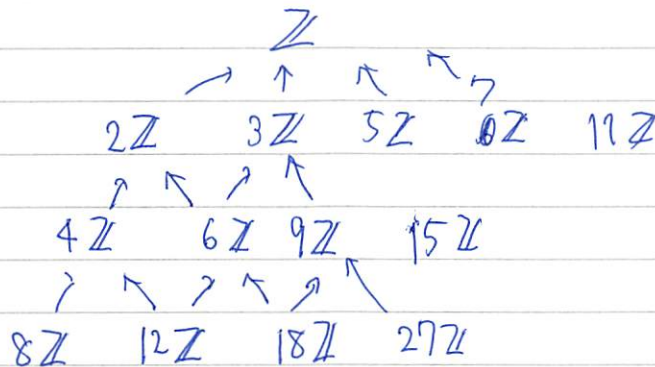 ℤ
7
2ℤ 3ℤ 5ℤ ℤ 11ℤ
4ℤ 6ℤ 9ℤ 15ℤ
8ℤ 12ℤ 18ℤ 27ℤ